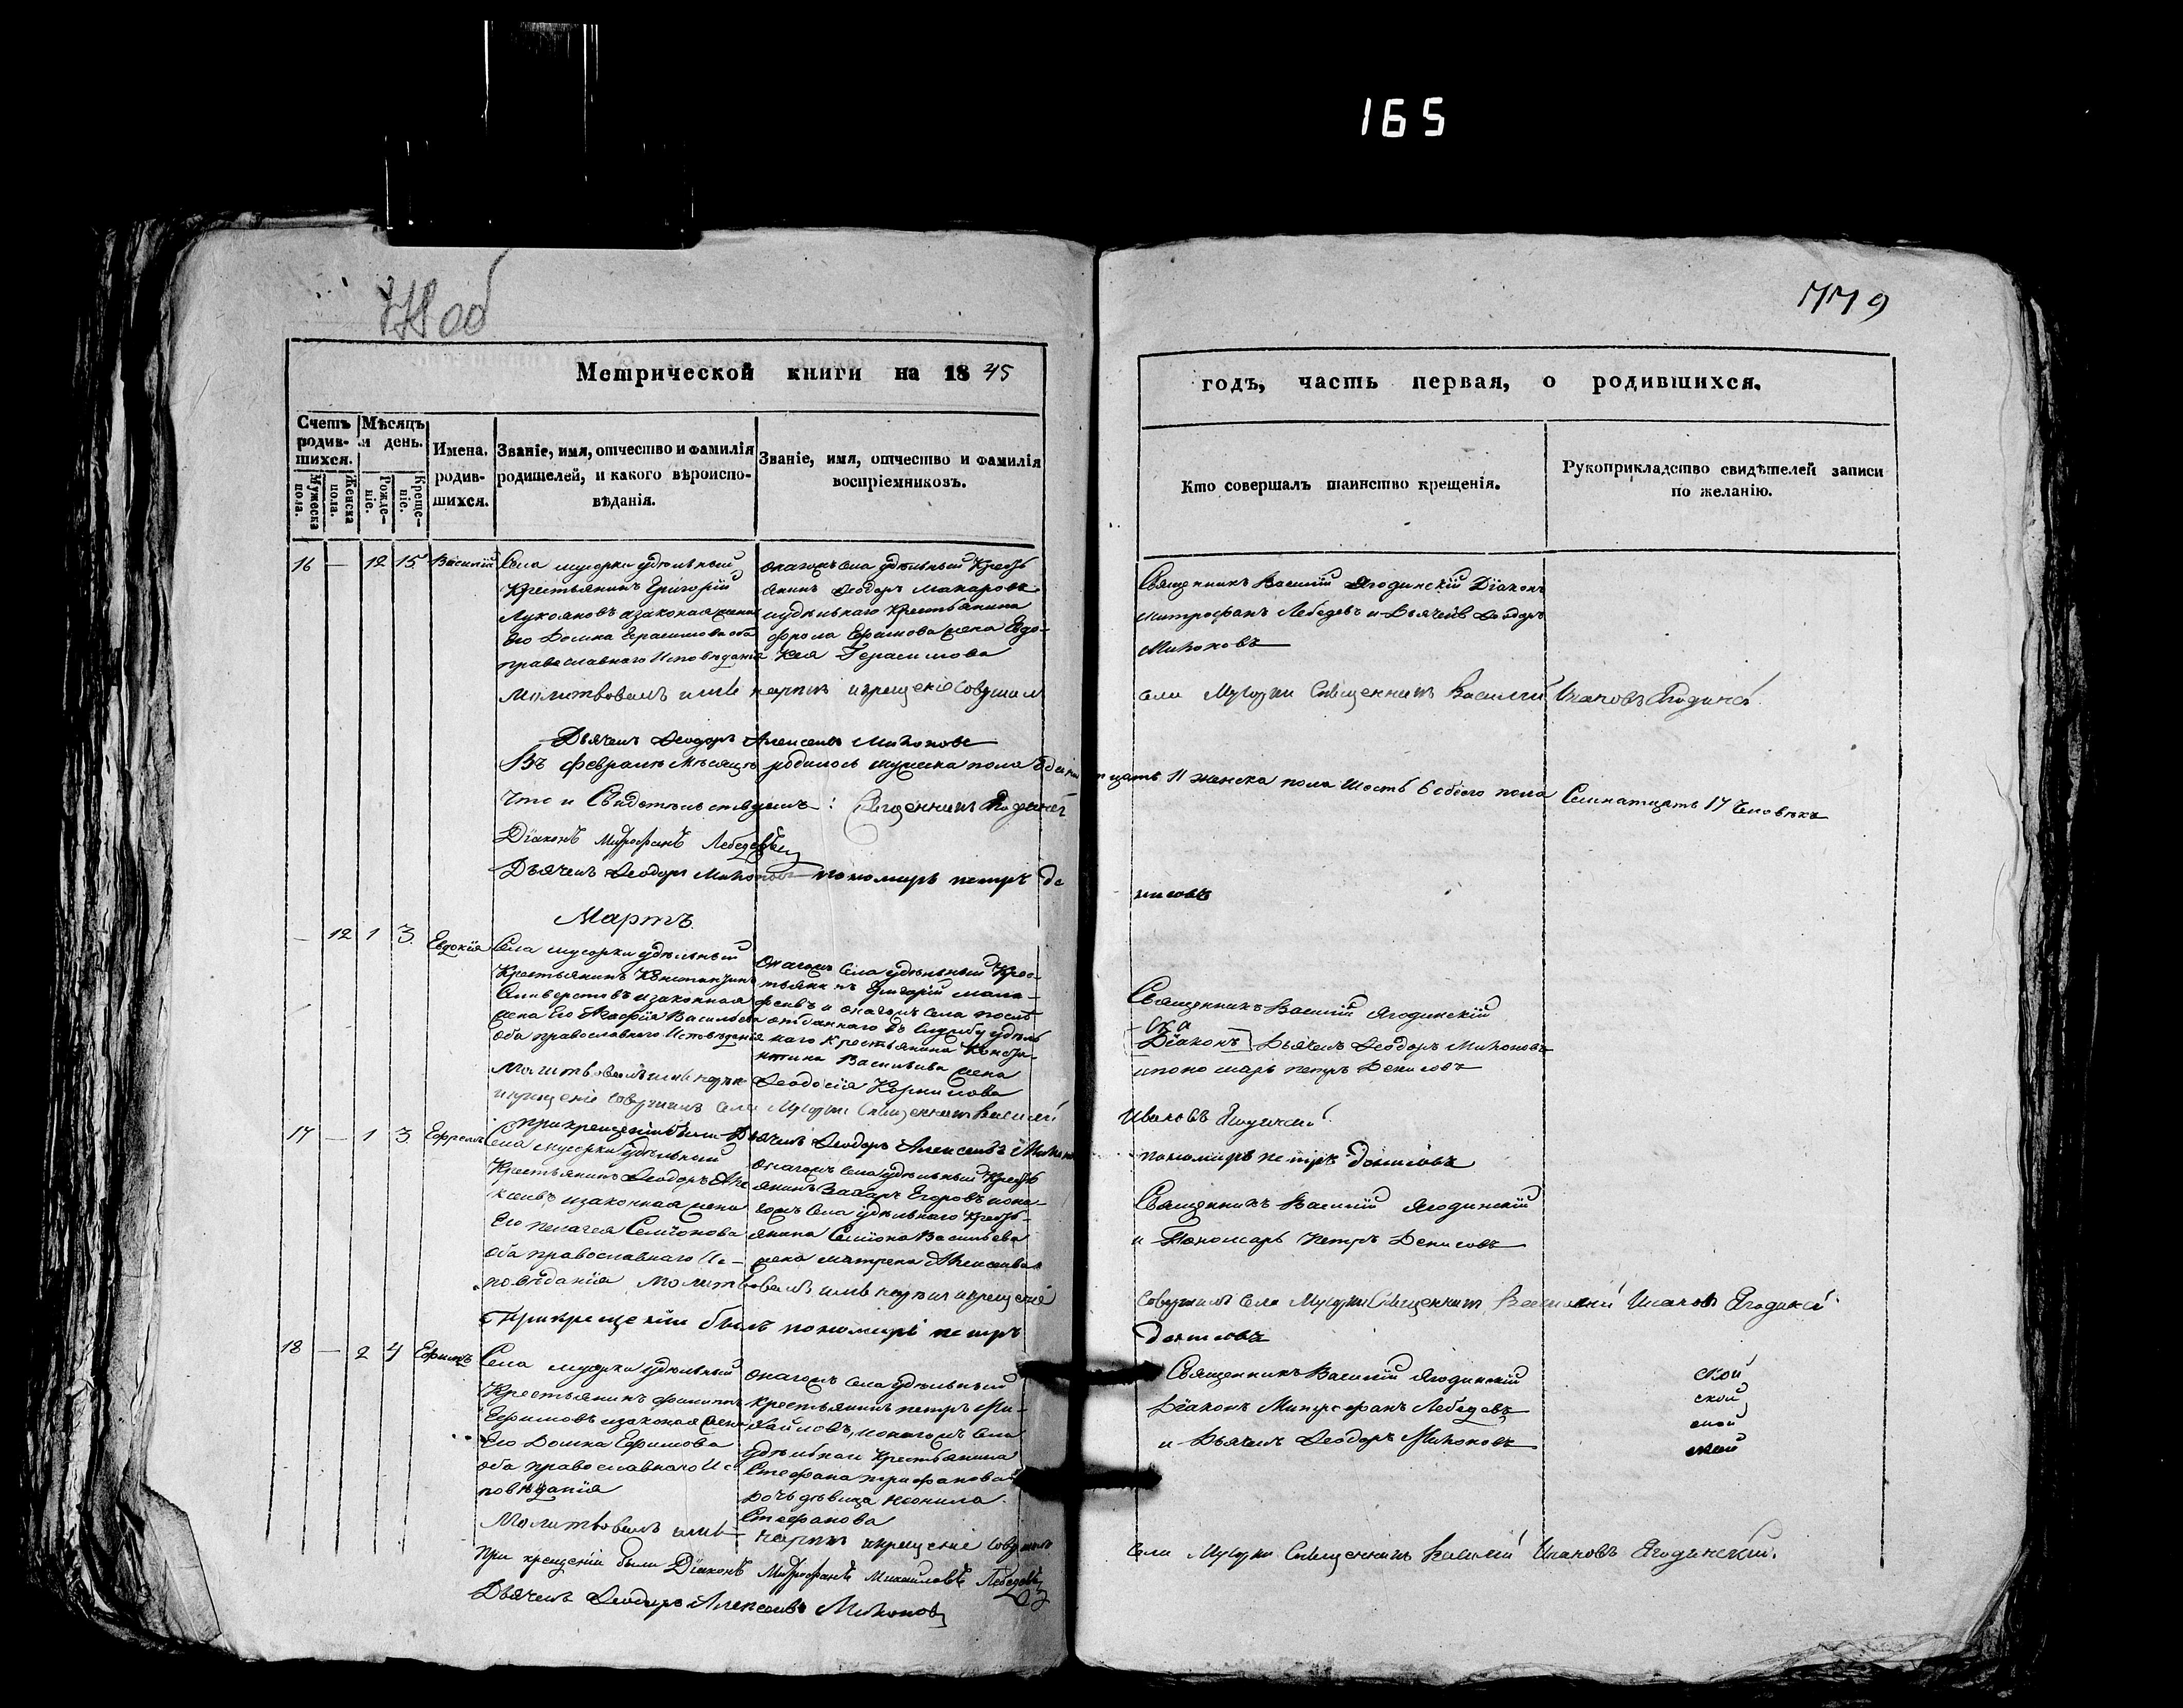 165
778 об
779
Метрической книги на 1845
годъ, часть первая, о родившихся.
Счетъ родив-шихся.
Мужеска пола.
Женска пола.
Мѣсяцъ и день.
Рожде-ніе.
Креще-ніе.
Имена родив-шихся.
Званіе, имя, отчество и фамилія
родителей, и какого вѣроиспо-
вѣданія.
Званіе, имя, отчество и фамилія
воспріемниковъ.
Кто совершалъ таинство крещенія.
Рукоприкладство свидѣтелей записи
по желанію.
16 — 12 15 Василій
Села мусорки удѣльный
Крестьянинъ Григорій
Лукояновъ и законная жена
Его Домна Герасимова оба
православнаго Исповѣданія
онагожъ села удѣльный Кресть
янинъ Ѳеодоръ Макаровъ
и удѣльнаго крестьянина
Фрола Ефимова жена Евдо-
кея Герасимова
Священникъ Василій Ягодинскій Діаконъ
Митрофанъ Лебедевъ и Дьячекъ Ѳеодоръ
Милоновъ
Молитвовалъ имя нарекъ и крещеніе совершилъ
села Мусорки Священникъ Василій Ивановъ Ягодинскій
Дьячекъ Ѳеодоръ Алексеевъ Милоновъ
Въ февралѣ мѣсяцѣ родилось мужска пола одинн
адцать 11 женска пола шесть 6 обоего пола Семнатцать 17 человѣкъ
Что и Свидѣтельствуемъ: Священникъ Ягодинскій
Діаконъ Митрофанъ Лебедевъ
Дьячекъ Ѳеодоръ Милоновъ пономарь петръ де
нисовъ
Мартъ.
— 12 1 3. Евдокія
Села мусорки удѣльный
Крестьянинъ Константинъ
Селиверстовъ и законная
жена Его Агафия Васильева
оба православнаго Исповѣденія
Онагожъ Села удѣльный Крес-
тьянинъ Григорій
и онагожъ села послѣ
отданнаго въ службу удѣль
наго Крестьянина Конста-
нтина Васильева жена
Ѳеодосія Корнилова
Священникъ Василій Ягодинскій
Діаконъ Дьячекъ Ѳеодоръ Милоновъ
и пономарь петръ Денисовъ
Молитвовалъ имя нарекъ
и крещеніе совершилъ села Мусорки Священникъ Василій
Ивановъ Ягодинскій
при крещеніи были Дьячекъ Ѳеодоръ Алексеевъ Милоно
пономарь петръ денисовъ
17 — 1 3. Ефремъ
Села мусорки удѣльный
Крестьянинъ Ѳеодоръ Але
ксеевъ и законная жена
Его пелагея Семионова
оба православнаго Ис-
повѣданія
Онагожъ Села удѣльный Кресть
янинъ Захаръ Егоровъ и она-
гожъ Села удѣльнаго Кресть-
янина Семиона Васильева
жена матрена Алексеева
Священникъ Василій Ягодинскій
и Пономарь Петръ Денисовъ
Молитвовалъ имя нарекъ и крещеніе
совершилъ села Мусорки Священникъ Василій Ивановъ Ягодинскій
При крещеніи былъ пономарь петръ
денисовъ
18 — 2 4 Ефимъ
Села мусорки удѣльный
Крестьянинъ Филиппъ
Ефимовъ и законая жена
Его Домна Ефимова
оба православнаго Ис
повѣданія
онагожъ Села удѣльный
крестьянинъ петръ Ми-
хайловъ, и онагожъ Села
удѣльнаго Крестьянина
Стефана трифанова
дочь дѣвица неонила
Стефанова
Священникъ Василій Ягодинскій
Діаконъ Митрофанъ Лебедевъ
и Дьячекъ Ѳеодоръ Милоновъ
ской
ской
ской
ской
Молитвовалъ имя нарекъ и крещеніе совершилъ
села Мусорки Священникъ Василій Ивановъ Ягодинскій.
При крещеніи были Діаконъ Митрофанъ Михайловъ Лебедевъ
Дьячекъ Ѳеодоръ Алексеевъ Милоновъ